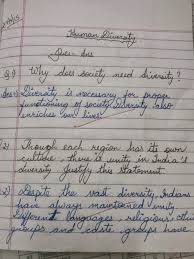 Human Diversity
Ques - Ans
Q.1) Why does society need diversity?
Ans→ Diversity is necessary for proper
functioning of society. Diversity also
enriches our lives.
2) Though each region has its own
culture, there is unity in India's
diversity. Justify this statement
2) Despite the vast diversity, Indians
have always maintioned unity.
Different languages, religious,
groups and caste groups have